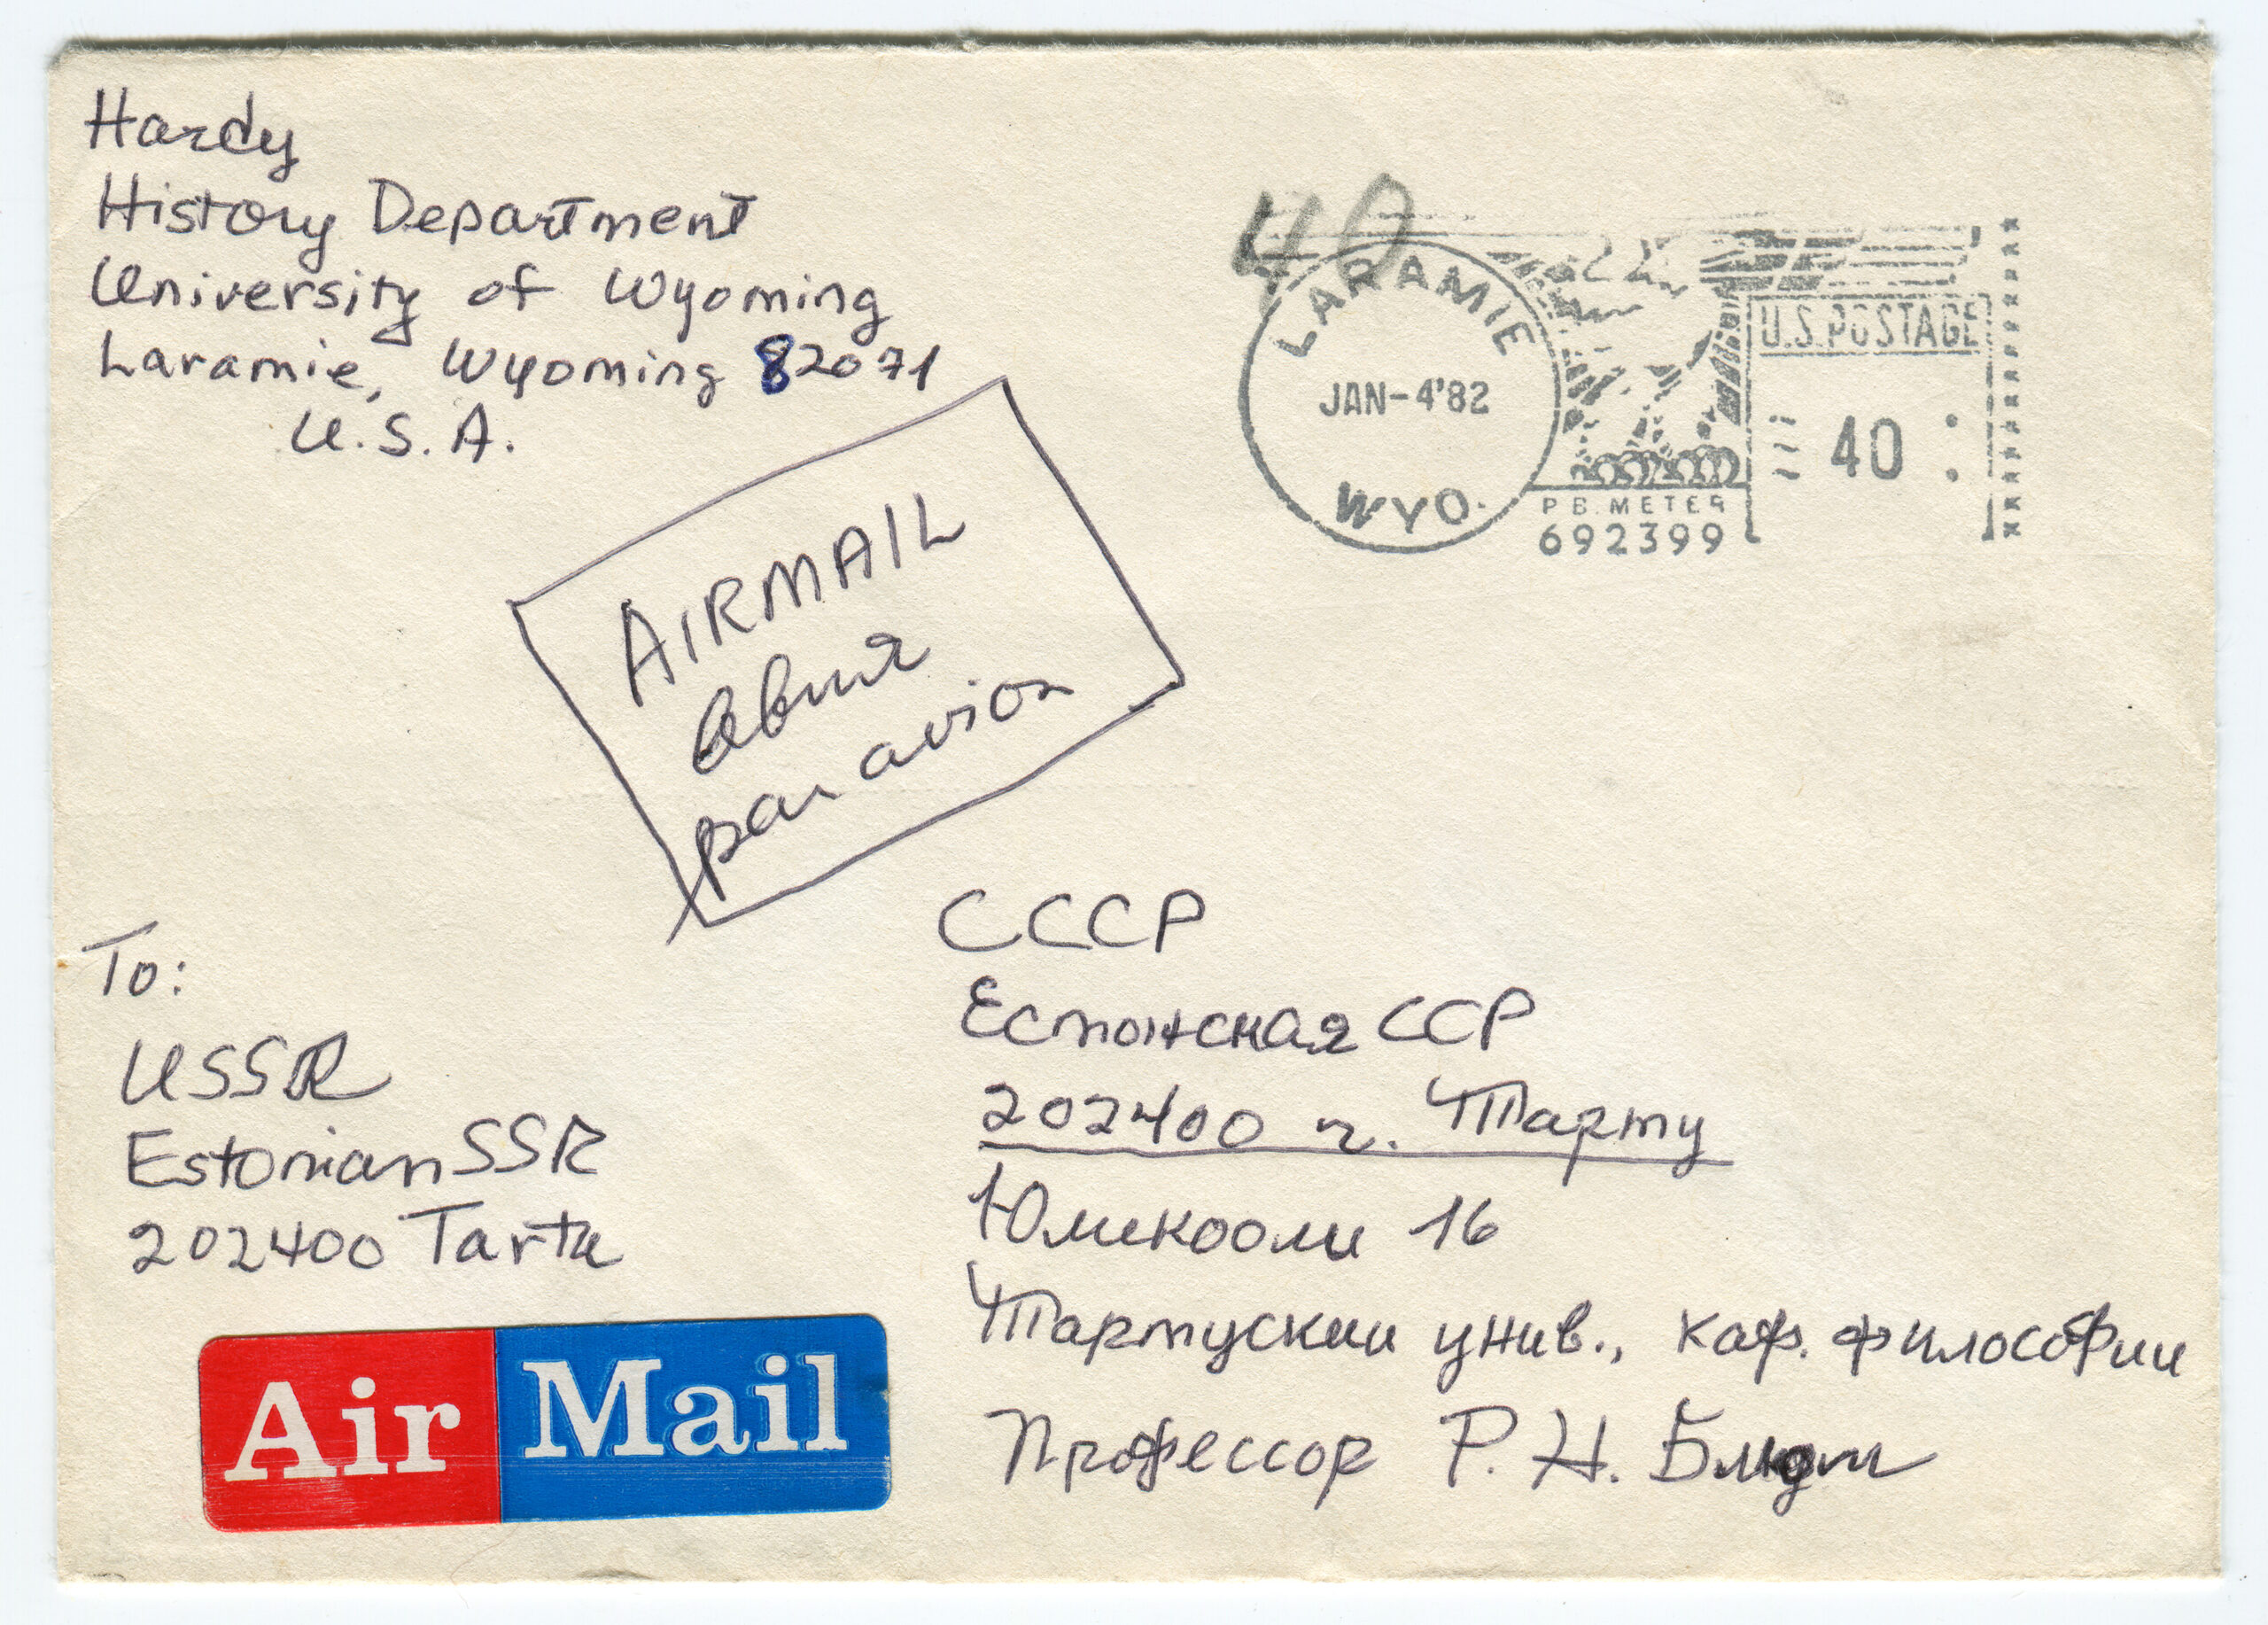 Hardy
History Department
University of Wyoming
Laramie, Wyoming 82071
U.S.A.
40
LARAMIE
JAN-4'82
WYO.
U.S. POSTAGE
40
P.B. METER
692399
AIRMAIL
авиа
par avion
To:
USSR
Estonian SSR
202400 Tartu
СССР
Естонская ССР
202400 г. Тарту
Юликооли 16
Тартуский унив., каф. философии
Профессор Р. Н. Блюм
Air Mail